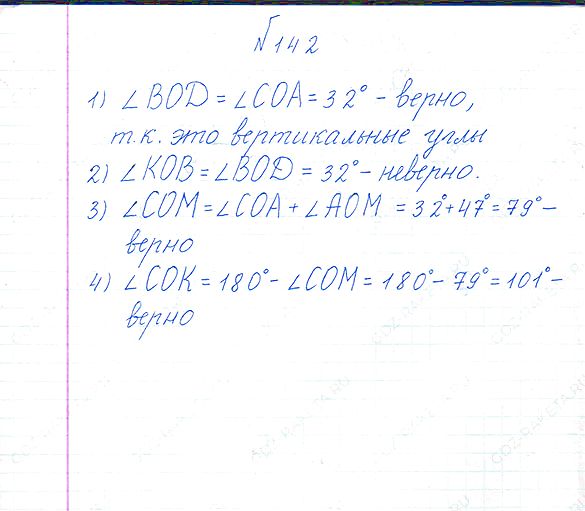 №142
1) ∠BOD = ∠COA = 32° - верно,
т.к. это вертикальные углы
2) ∠KOB = ∠BOD = 32° - неверно.
3) ∠COM = ∠COA + ∠AOM = 32° + 47° = 79° -
верно
4) ∠COK = 180° - ∠COM = 180° - 79° = 101° -
верно
GDZ-RAKETA.RU